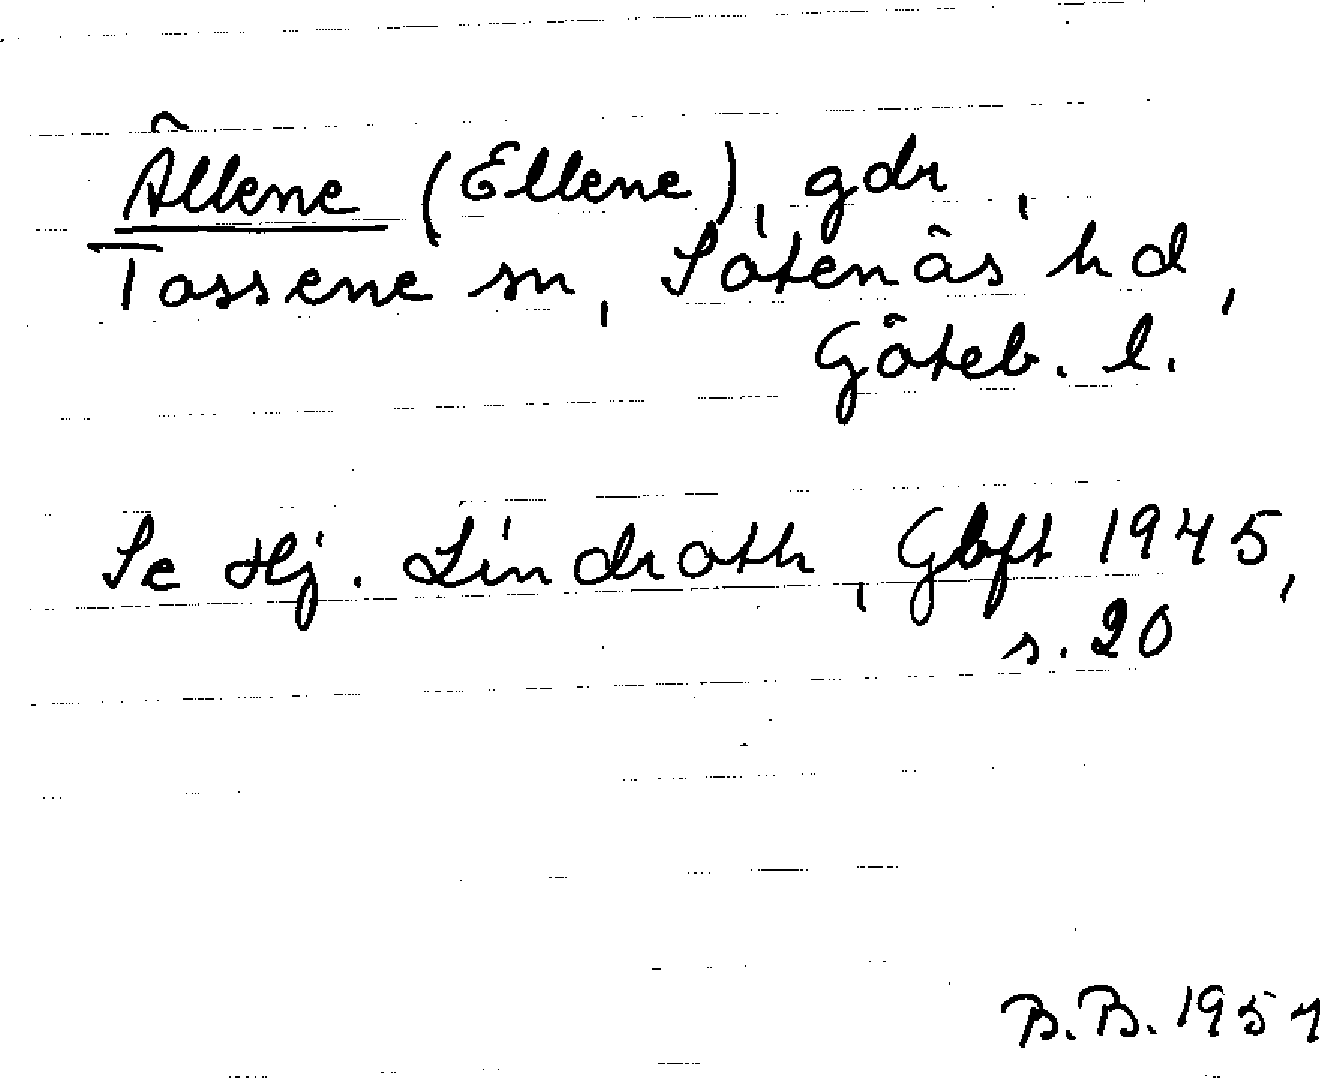 Ällene (Ellene), gdr,
Tossene sn, Sotenäs hd,
Göteb. l.
Se Hj. Lindroth, Gbft 1945,
s. 20
B.B. 1951